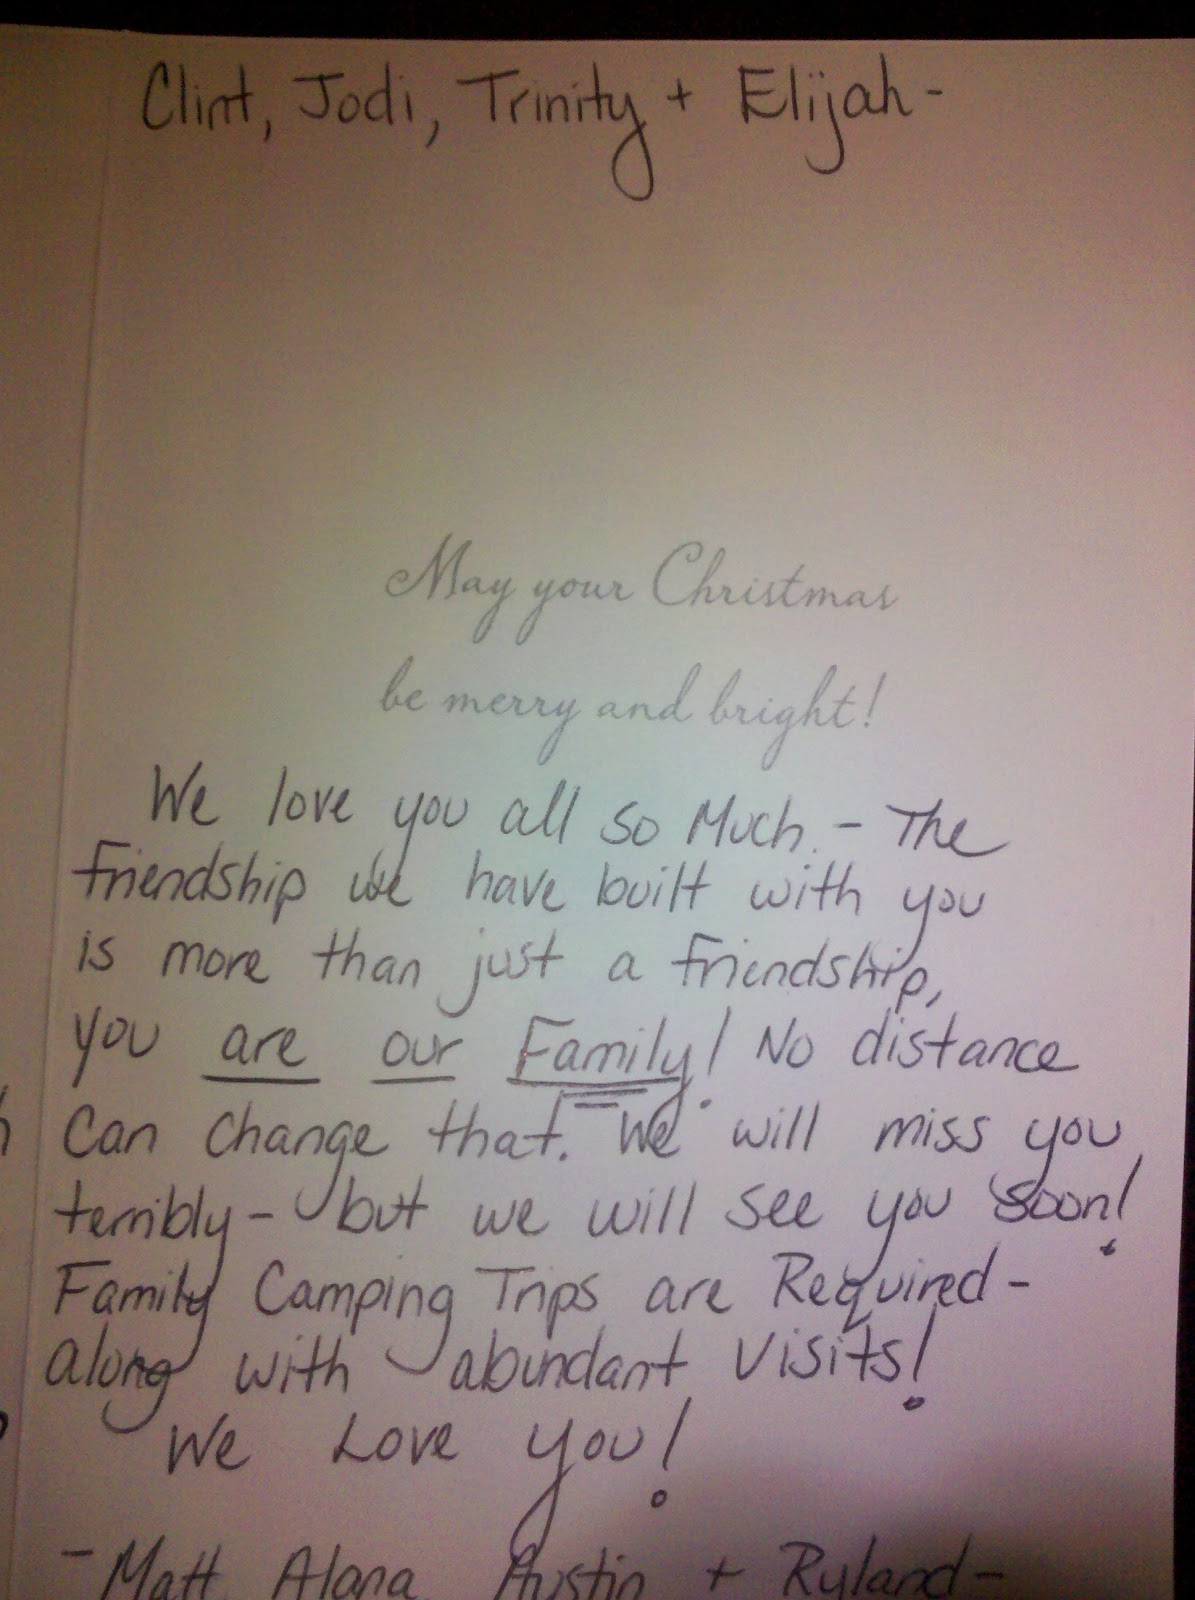 Clint, Jodi, Trinity + Elijah-
May your Christmas
be merry and bright!
We love you all so Much. - The
friendship we have built with you
is more than just a friendship,
you are our Family! No distance
Can change that. We will miss you
terribly - but we will see you soon!
Family Camping Trips are Required -
along with abundant visits!
We Love you!
- Matt Alana Austin + Ryland -